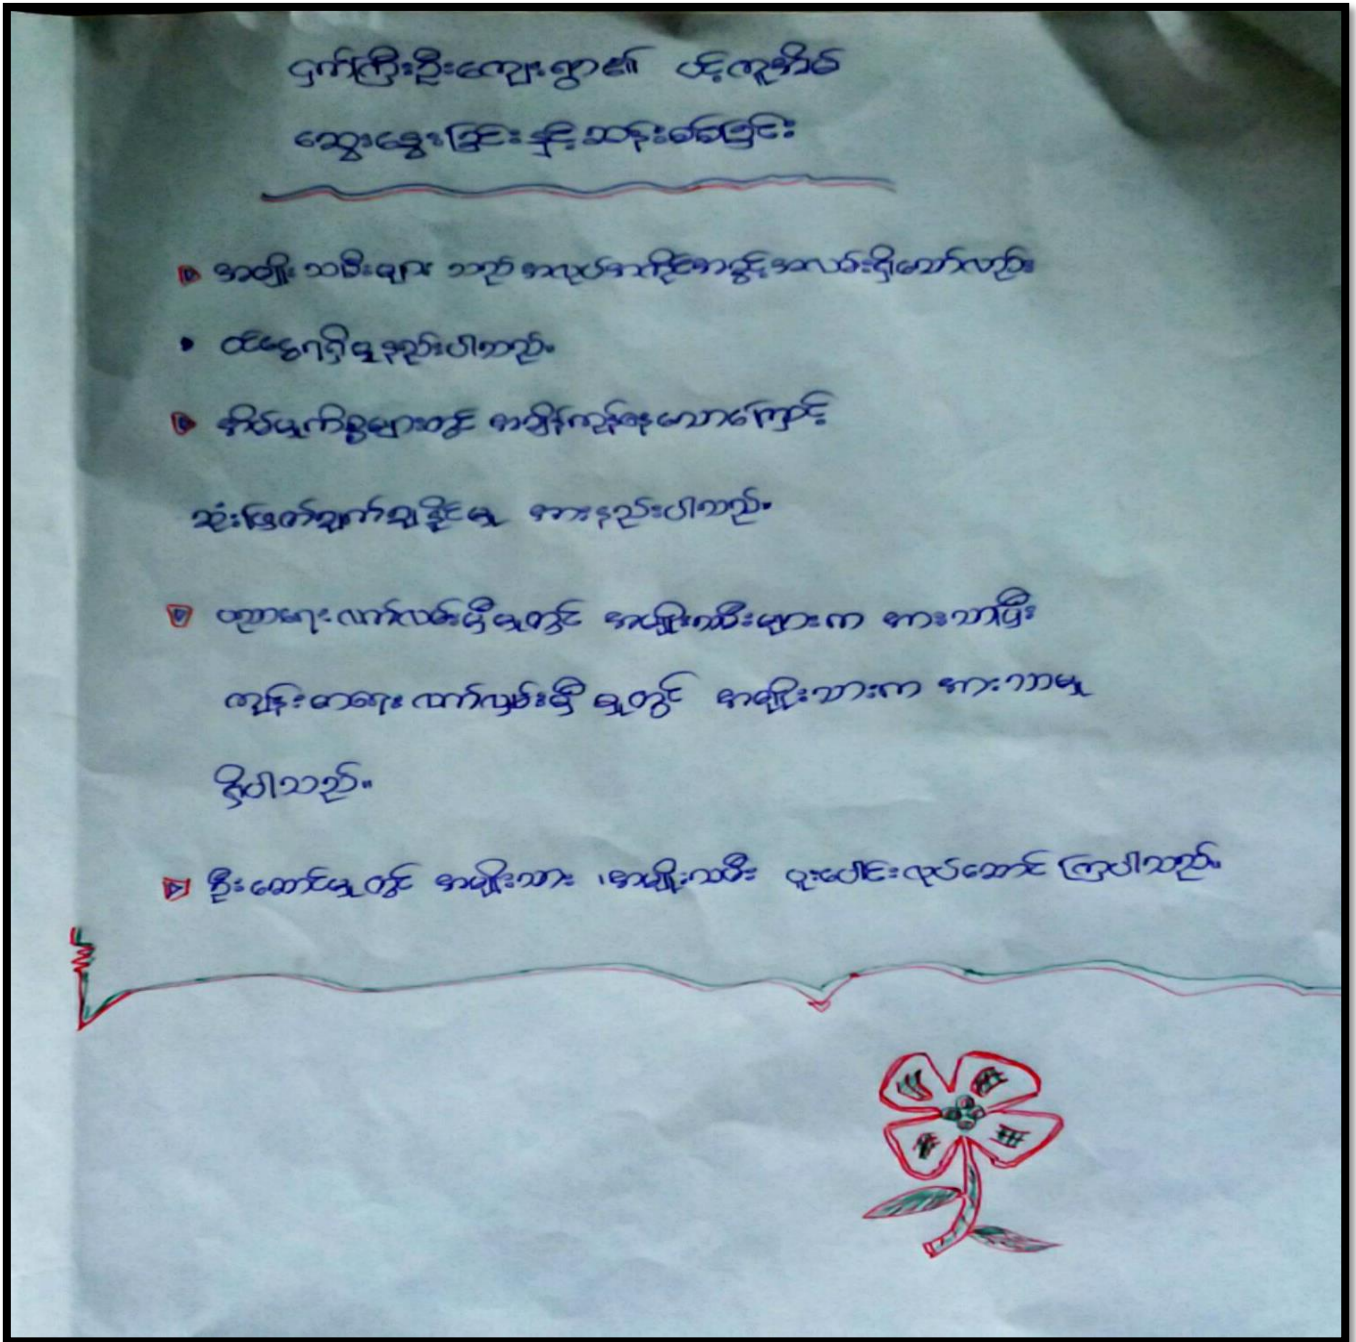 ငှက်ကြီးဦးကျေးရွာ၏ ပင့်ကူအိမ်
ဆွေးနွေးခြင်းနှင့်ဆန်းစစ်ခြင်း
အမျိုးသမီးများ သည် အလုပ်အကိုင်အခွင့်အလမ်းရှိသော်လည်း
ဝင်ငွေရရှိမှုနည်းပါသည်။
အိမ်မှုကိစ္စများတွင် အချိန်ကုန်နေသောကြောင့်
ဆုံးဖြတ်ချက်ချနိုင်မှု အားနည်းပါသည်။
ပညာရေးလက်လှမ်းမှီမှုတွင် အမျိုးသမီးများက အားသာပြီး
ကျန်းမာရေးလက်လှမ်းမှီမှုတွင် အမျိုးသားက အားသာမှု
ရှိပါသည်။
ဦးဆောင်မှုတွင် အမျိုးသား ၊အမျိုးသမီး ပူးပေါင်းလုပ်ဆောင်ကြပါသည်။